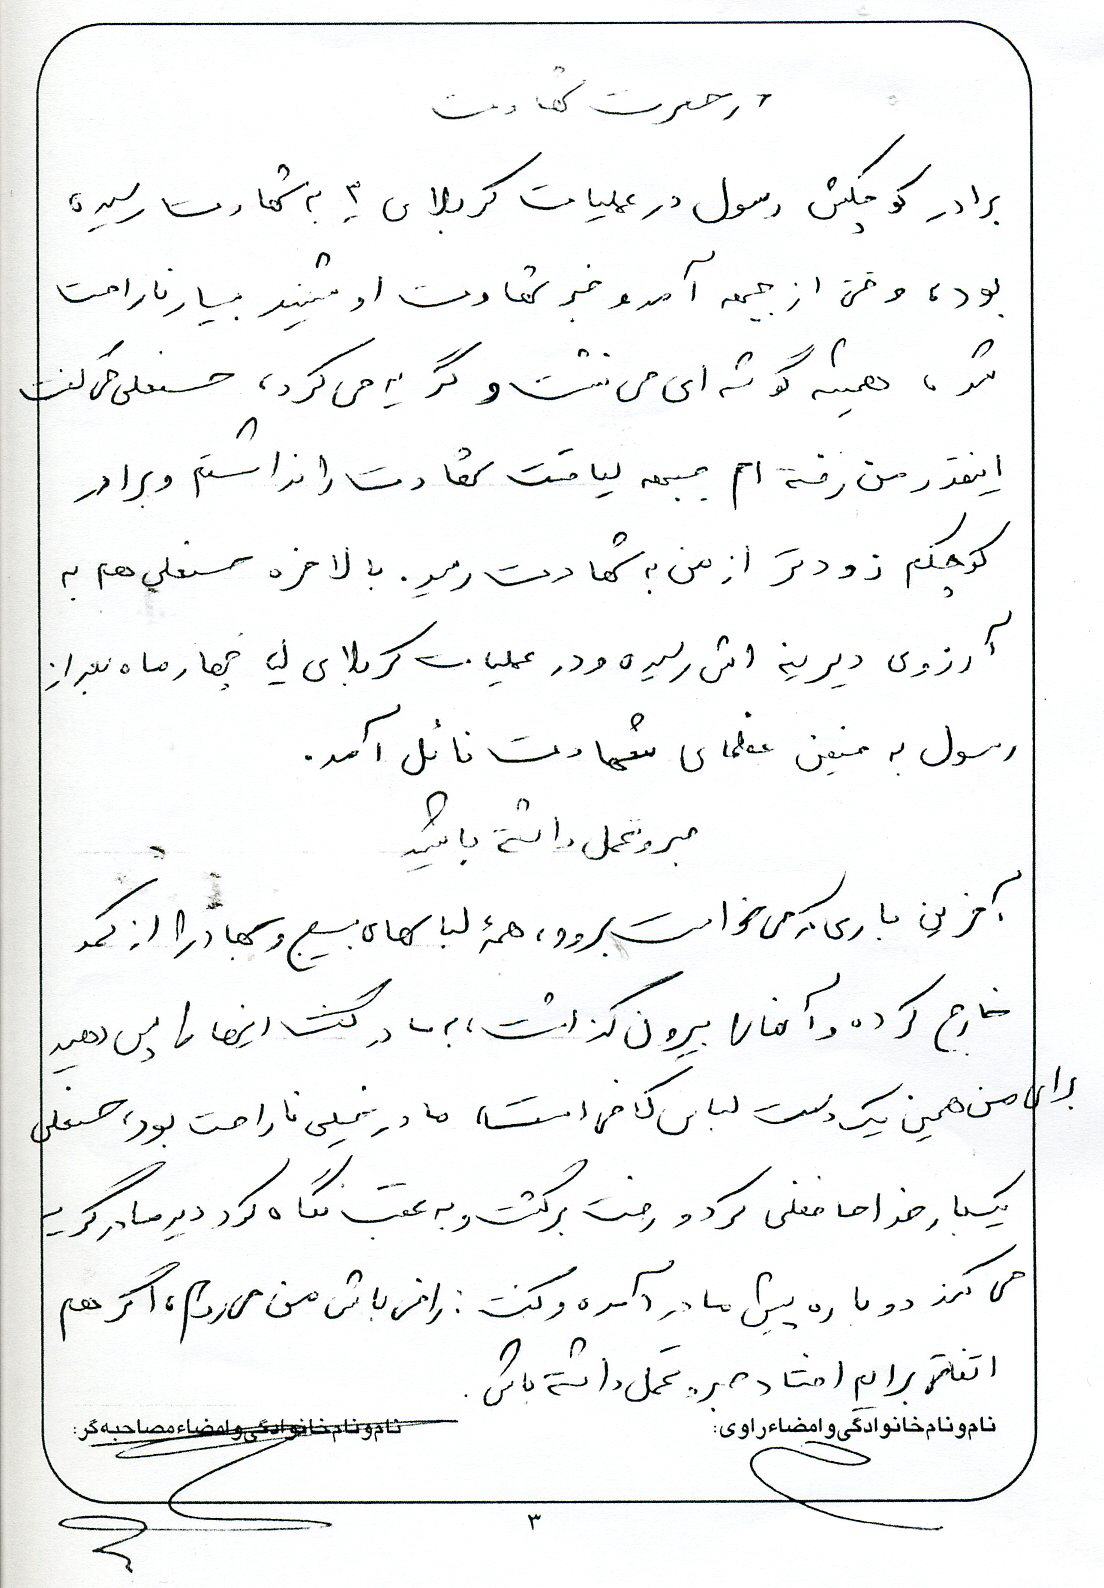 در حسرت شهادت
برادر کوچکش رسول در عملیات کربلای ۴ به شهادت رسیده
بود، وقتی از جبهه آمد و خبر شهادت او شنید بسیار ناراحت
شد، همیشه گوشه ای می نشست و گریه می کرد، حسنعلی می گفت
اینقدر من رفته ام جبهه لیاقت شهادت را نداشتم و برادر
کوچکم زودتر از من به شهادت رسید. بالاخره حسنعلی هم به
آرزوی دیرینه اش رسیده و در عملیات کربلای چهار ماه بعد از
رسول به فیض عظمای شهادت نائل آمد.
صبر و تحمل داشته باشید
آخرین باری که می خواست برود، همهٔ لباسهای بسیج و سپاه را از کمد
خارج کرده و آنها را بیرون گذاشت، به مادر گفت اینها را پس دهید
برای من همین یک دست لباس کافی است، مادر خیلی ناراحت بود، حسنعلی
یکبار خداحافظی کرد و رفت برگشت و به عقب نگاه کرد دید مادر گریه
می کند دوباره پیش مادر آمده و گفت: راضی باش من می روم، اگر هم
اتفاقی برایم افتاد صبر و تحمل داشته باش.
نام و نام خانوادگی و امضاء راوی: نام و نام خانوادگی و امضاء مصاحبه گر:
۳